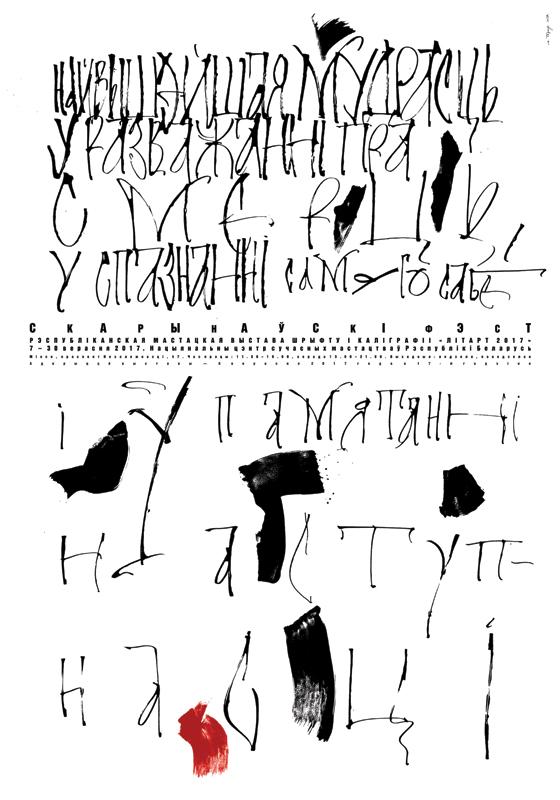 найвышэйшая мудрасць
у разважанні пра
смерць,
у спазнанні самога сабе
СКАРЫНАЎСКІ ФЭСТ
РЭСПУБЛІКАНСКАЯ МАСТАЦКАЯ ВЫСТАВА ШРЫФТУ І КАЛІГРАФІІ «ЛІТАРТ 2017»
7–30 верасня 2017. Нацыянальны цэнтр сучасных мастацтваў Рэспублікі Беларусь
і ў памятанні
наступ-
насці